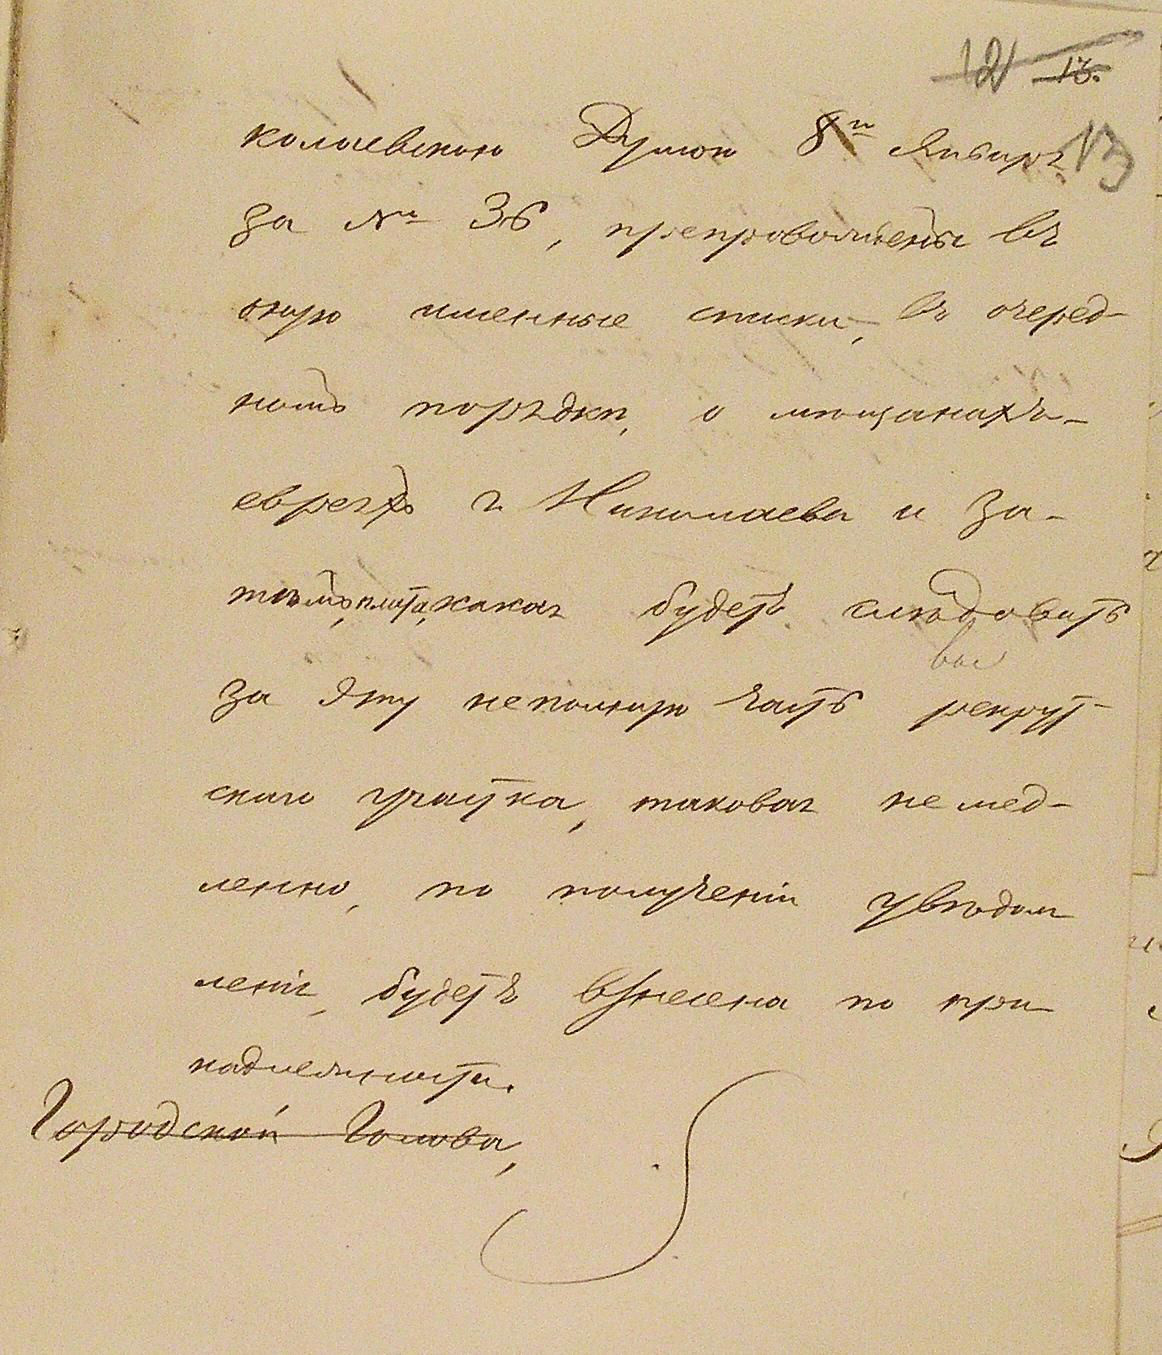 12 13.
13
колаевскою Думою 8го Января
за № 36, препровождены въ
оную именные списки, въ очеред-
номъ порядкѣ, о мѣщанахъ-
евреяхъ г. Николаева и за-
тѣмъ, плата, какая будетъ слѣдовать
за эту неполную часть рекрут-
скаго участка, таковая немед-
ленно, по полученіи увѣдом-
ленія, будетъ взнесена по при-
надлежности.
Городской Голова,